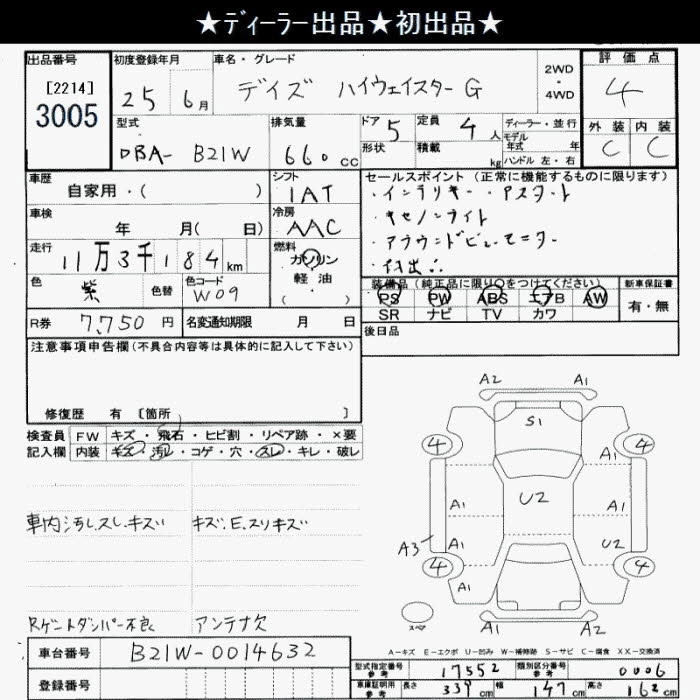 ★ディーラー出品★初出品★
出品番号
[2214]
3005
初度登録年月
25 6月
車名・グレード
デイズ ハイウェイスターG
2WD
・
4WD
評価点
4
外装 内装
C C
型式
DBA- B21W
排気量
660cc
ドア 5
形状
定員 4人
積載 kg
ディーラー・並行
モデル年式 年
ハンドル 左・右
車歴
自家用・( )
シフト
IAT
車検
年 月( 日)
冷房
AAC
走行
11万3千184km
燃料
ガソリン
・
軽油
( )
色
紫
色替
色コード
W09
R券 7,750円
名変通知期限 月 日
セールスポイント(正常に機能するものに限ります)
・インテリキー・アスタート
・キセノンライト
・アラウンドビューモニター
装備品(純正品に限り○をつけてください)
PS PW ABS エアB AW
SR ナビ TV カワ
新車保証書
有・無
後日品
注意事項申告欄(不具合内容等は具体的に記入して下さい)
修復歴 有 〔箇所 〕
検査員記入欄
FW キズ・飛石・ヒビ割・リペア跡・×要
内装 キズ・汚レ・コゲ・穴・スレ・キレ・破レ
車内汚レ.スレ.キズ キズ.E.スリキズ
Rゲートダンパー不良 アンテナ欠
A2 A1
S1
4 4
A1
A1 U2 A1
A3 A1 U2
4 4
A1
スペア
A1 A2
A-キズ E-エクボ U-凹み W-補修跡 S-サビ C-腐食 XX-交換済
車台番号 B21W-0014632
登録番号
型式指定番号 参考 17552
類別区分番号 参考 0006
車庫証明用 参考 長さ 339cm 幅 147cm 高さ 162cm